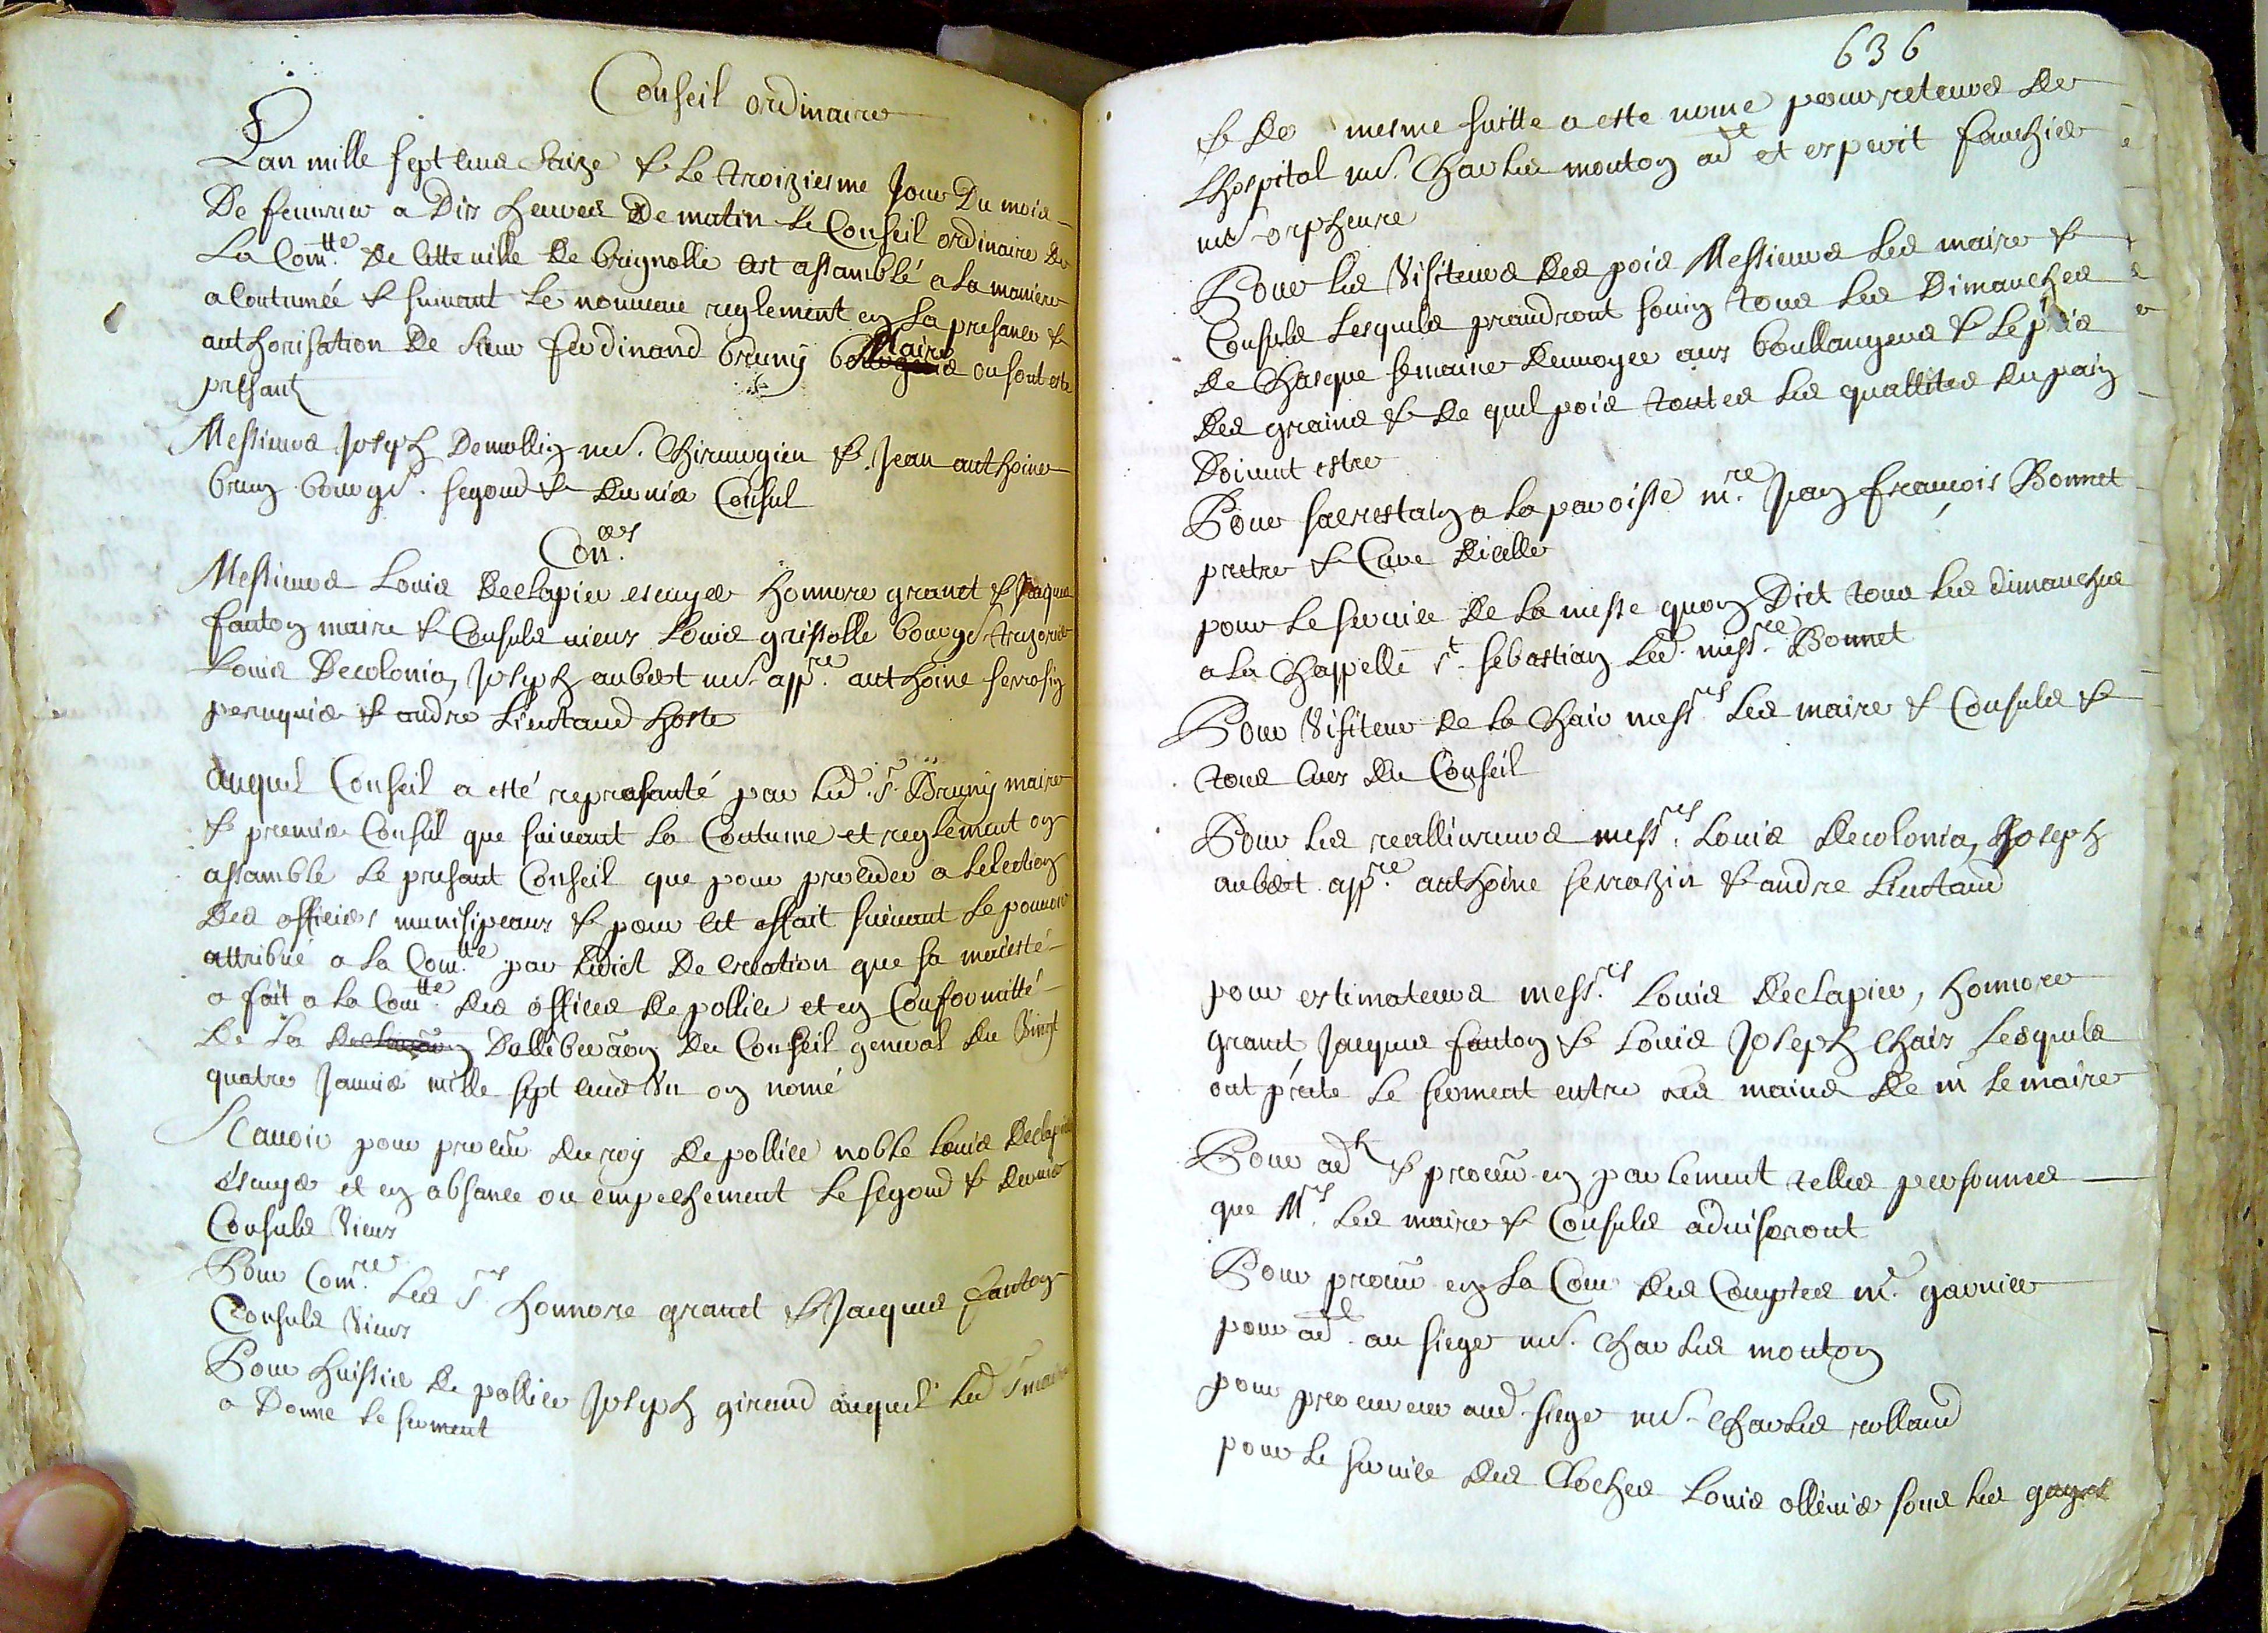 Conseil ordinaire
Lan mille sept cens saize & le troiziesme jour du mois
De feuvrier a dix heures de matin le Conseil ordinaire de
La Com.tte de cette ville de brignolle cest assamblé a la maniere
acoutumée & suivant le nouveau reglement en la presance &
authorisation de sieur ferdinand bruny Maire ou sont este
presant
Messieurs Joseph Demollin me. Chirurgien & Jean anthoine
brun bourgs. segond & dernier Consul
Con.ers
Messieurs Louis Declapier escuyer honnore granet & Jaques
fanton maire & Consuls vieux Louis grissolle bourgs. trezorier
Louis Decolonia, Joseph aubert me. app.re anthoine serrasin
peruquier & andre Lieutaud hoste
auquel Conseil a esté represanté par led. sr. Bruny maire
& premier Consul que suivant la Coutume et reglement on
assamble le presant Conseil que pour proceder a lelection
des officiers munisipeaux & pour cet effait suivant le pouvoir
attribué a la Com.tte par ledict de creation que sa maiesté
a fait a la Com.tte des offices de pollice et en Conformitté
de la Dellibera͠on du Conseil general du vingt
quatre Janvier mille sept cens un on nomé
Scavoir pour procur͠ du roy de pollice noble Louis Declapier
escuyer et en absance ou empechement le segond & dernier
Consuls vieux
Pour Com.re les srs honnore granet & Jacques fanton
Consuls vieux
Pour huissier de pollice Joseph giraud auquel led sr maire
a donne le serment
636
& de mesme suitte a este nome pour reteurs de
lhospital me. Charles mouton adt et esperit fauchier
me orpheure
Pour les visiteurs des pois Messieurs les maire &
Consuls lesquels prandront soing tous les dimanches
de chasque semaine denvoyer aux boullangers & le prix
des grains & de quel pois toutes les quallites du pain
doivent estre
Pour sacrestain a la paroisse m.re Jean francois Bonnet
pretre & Cure dicelle
pour le service de la messe quon dict tous les dimanches
a la chappelle st. sebastian led. mess.re Bonnet
Pour visiteur de la chair mess.rs les maire & Consuls &
tous ceux du Conseil
Pour les reallivreurs mess.rs Louis Decolonia, Joseph
aubert app.re anthoine serrazin & andre Lieutaud
pour estimateurs mess.rs Louis Declapier, honnore
granet, Jacques fanton & Louis Joseph chaix lesquels
ont preste le serment entre les mains de mr le maire
Pour adt & procur͠ en parlement telles personnes
que Mrs. les maire & Consuls adviseront
Pour procur͠ en la Cour des Comptes me. garnier
pour adt. au siege me. charles mouton
pour procureur aud. siege me. charles rolland
pour le service des cloches Louis ollivier sous les gages